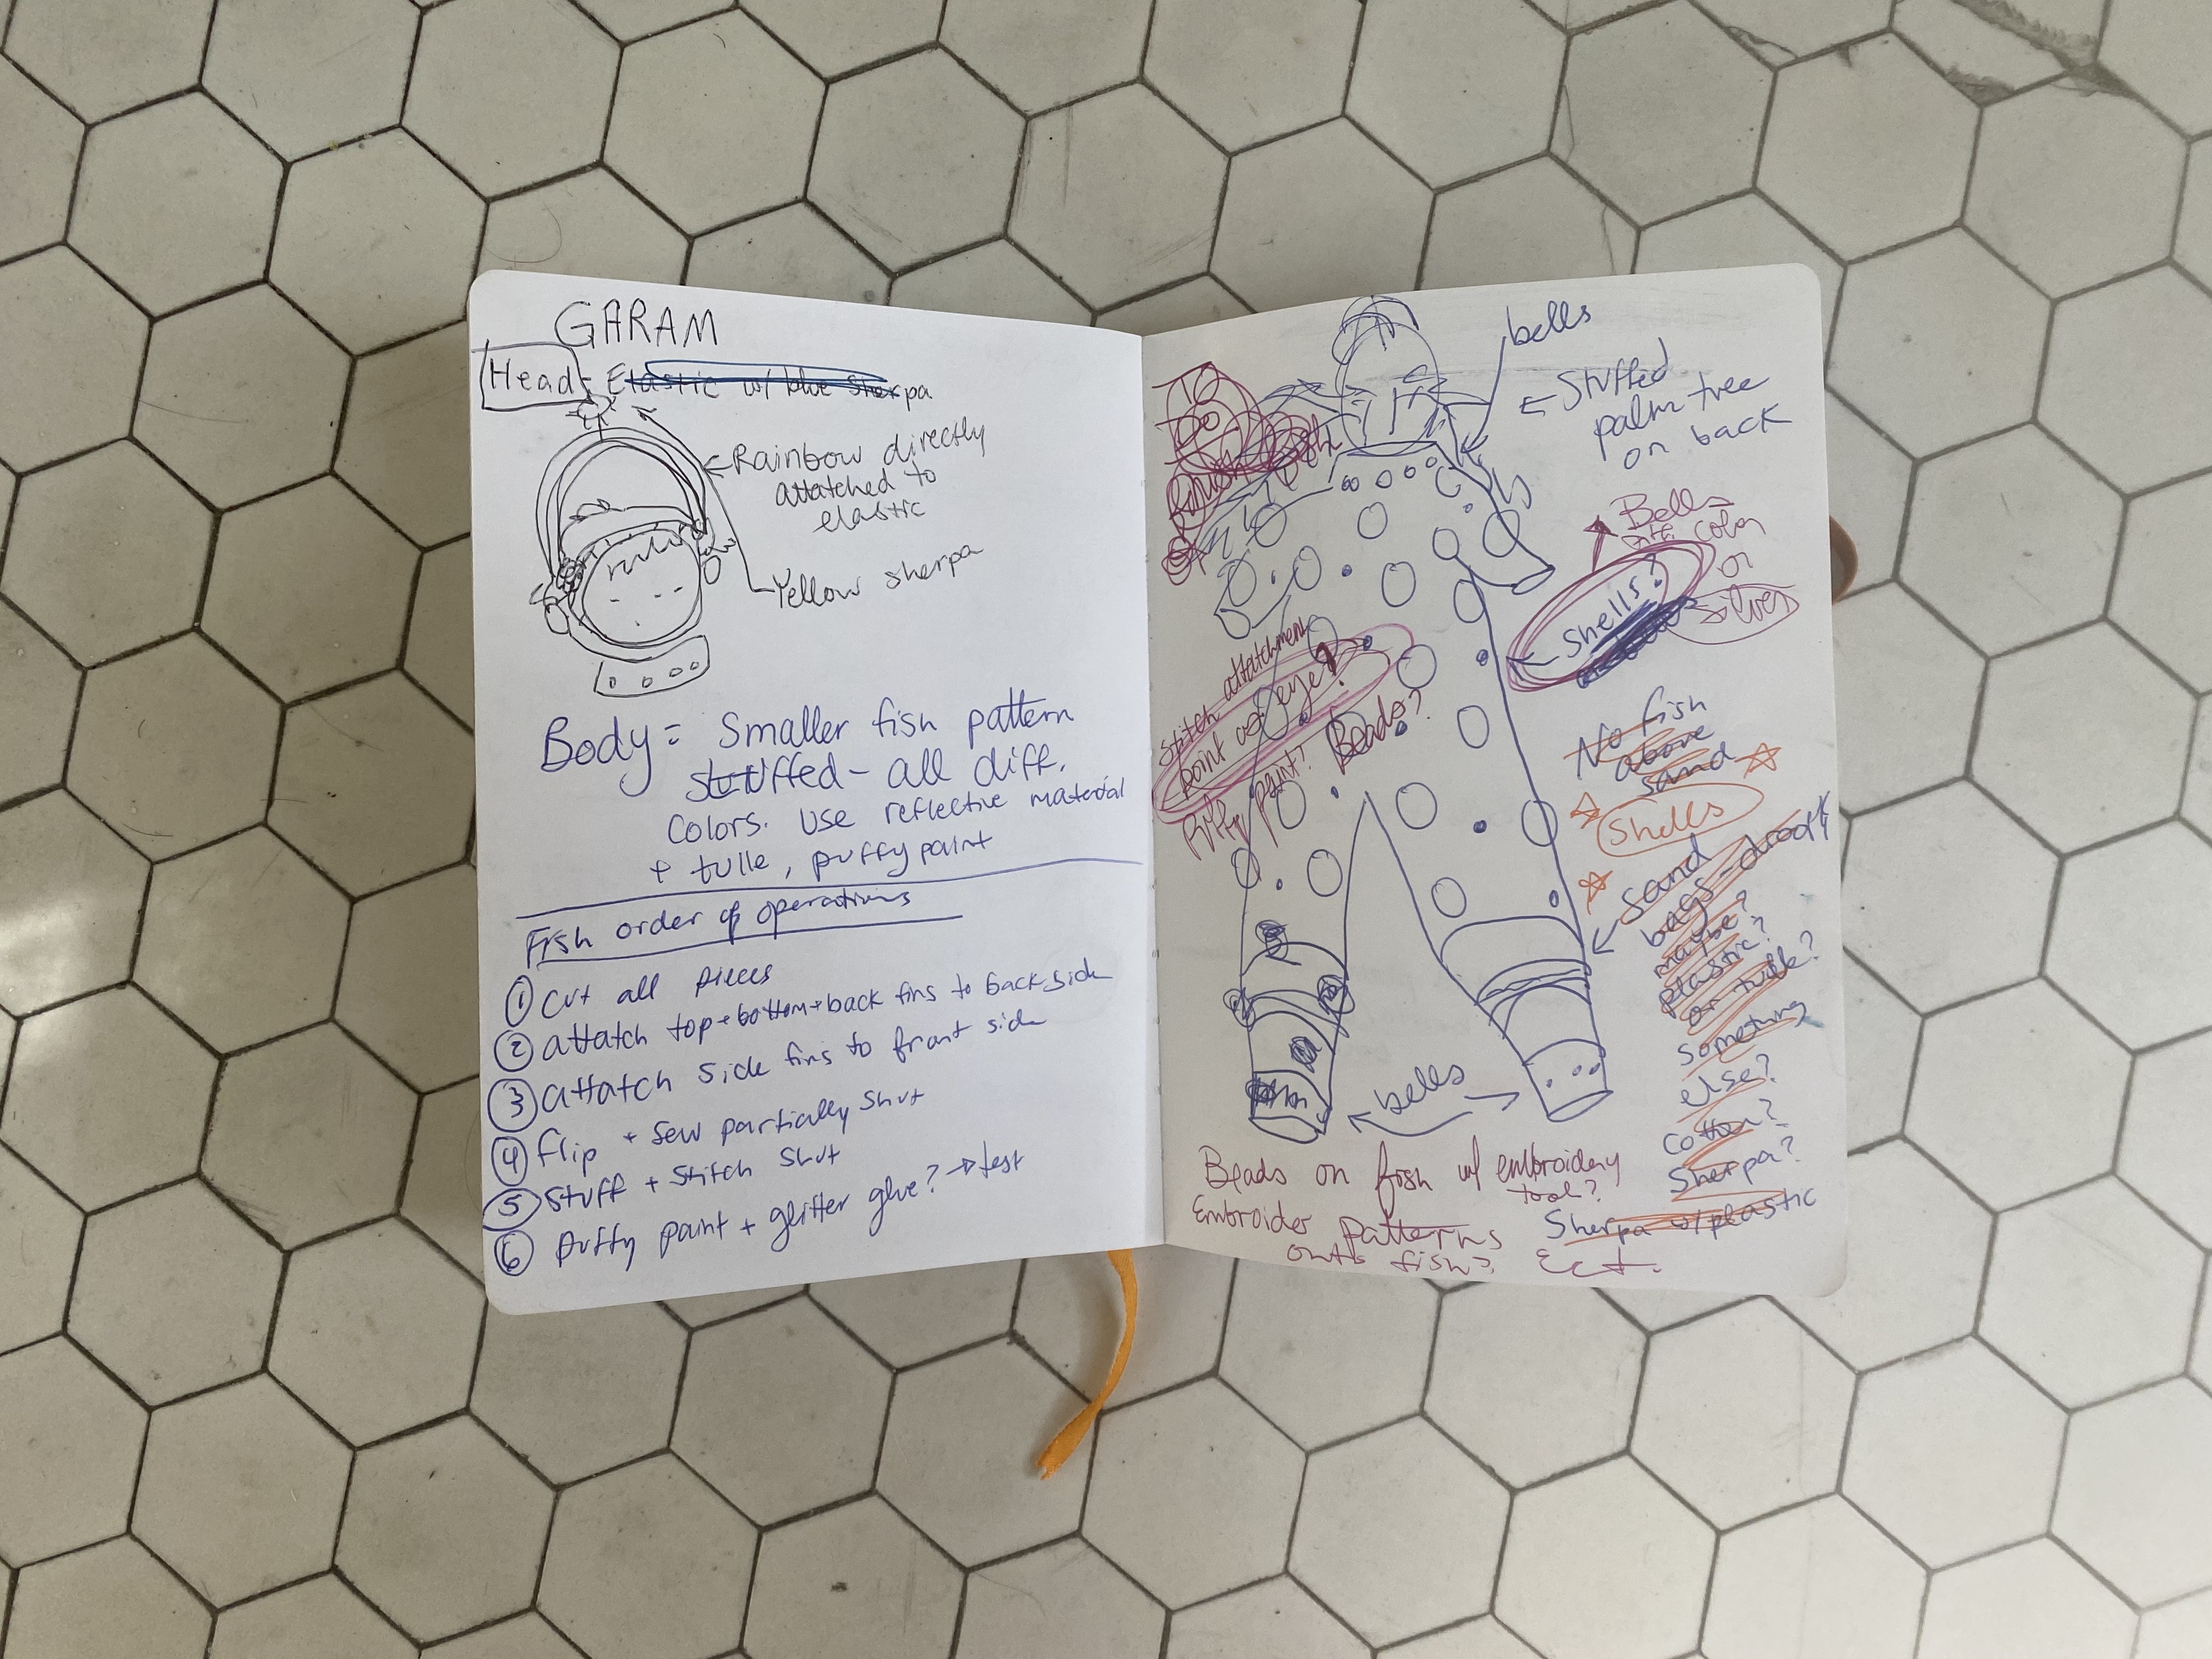 GARAM
Head: Elastic w/ blue Sherpa
Rainbow directly
attatched to
elastic
Yellow sherpa
Body = Smaller fish pattern
stuffed - all diff.
Colors. Use reflective material
+ tulle, puffy paint
Fish order of operations
① cut all pieces
② attatch top + bottom + back fins to back side
③ attatch side fins to front side
④ flip + sew partially shut
⑤ stuff + stitch shut
⑥ puffy paint + glitter glue? → test
bells
← Stuffed
palm tree
on back
Bells
color
or
silver
Shells?
stitch attatchment
point as eye?
puffy paint? Beads?
No fish
above
sand
Shells
Sand
bags
maybe?
plastic?
or tulle?
Something
else?
Cotton?
Sherpa?
Sherpa w/ plastic
bells
Beads on fish w/ embroidery
tool?
Embroider patterns
onto fish? Ect.